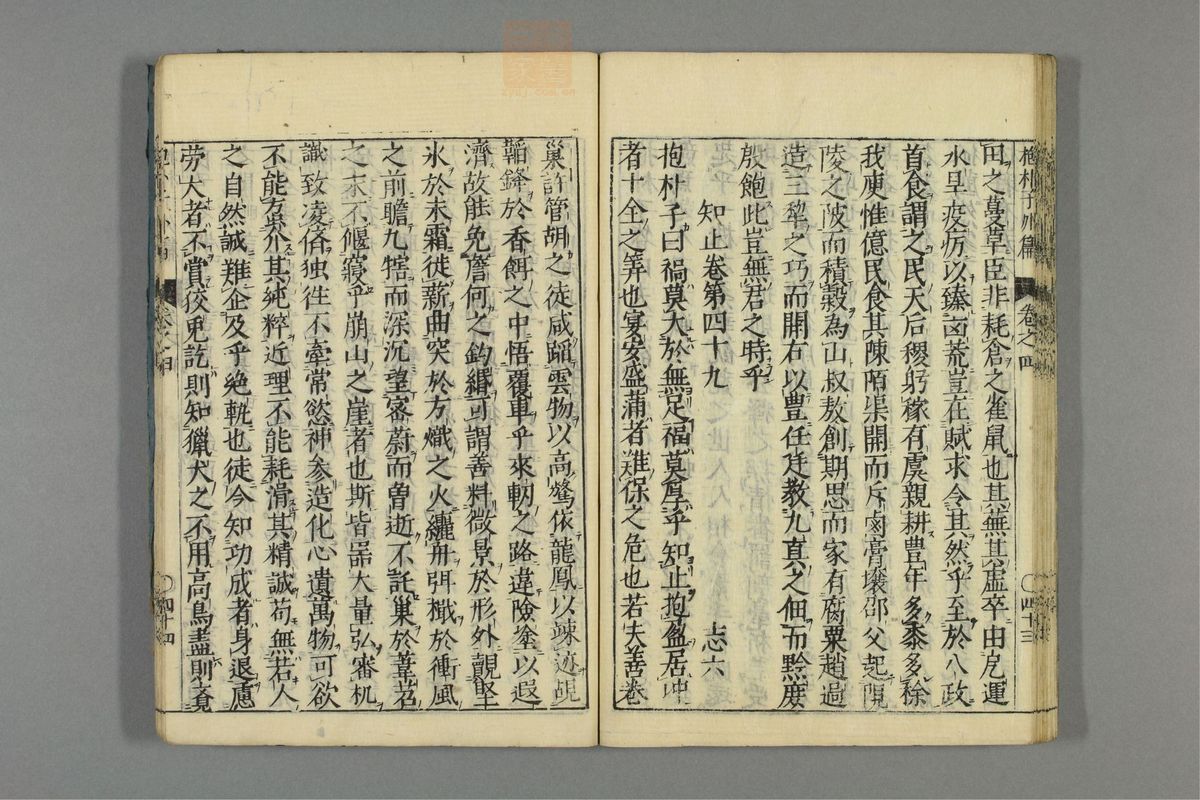 抱朴子外篇 卷之四 〇四十三
田之蔓草臣非耗倉之雀鼠也其無其虛卒由戹運
水旱疫癘以臻凶荒豈在賦求令其然乎至於八政
首食謂之民天后稷躬稼有虞親耕豊年多黍多稌
我庾惟億民食其陳陌渠開而斥鹵膏壤邵父起陽
陵之陂而積穀為山叔敖創期思而家有腐粟趙過
造三犂之巧而開右以豊任延教九真之佃而黔庶
殷飽此豈無君之時乎
知止卷第四十九 志六
抱朴子曰禍莫大於無足福莫厚乎知止抱盈居冲
者十全之筭也宴安盛蒲者難保之危也若夫善卷
巢許管胡之徒咸蹈雲物以高騖依龍鳳以竦迹覘
韜鋒於香餌之中悟覆車乎來軔之路違險塗以遐
濟故能免詹何之釣緡可謂善料微景於形外覿堅
氷於未霜徙薪曲突於方熾之火纚舟弭檝於衝風
之前瞻九犗而深沉望密蔚而曾逝不託巢於葦苕
之末不偃寢乎崩山之崖者也斯皆器大量弘審机
識致凌儕独徃不牽常慾神參造化心遺萬物可欲
不能蔕介其純粹近理不能耗滑其精誠苟無若人
之自然誠難企及乎絶軌也徒令知功成者身退慮
勞大者不賞狡兎訖則知獵犬之不用高鳥盡則覺
卷之四 〇四十四